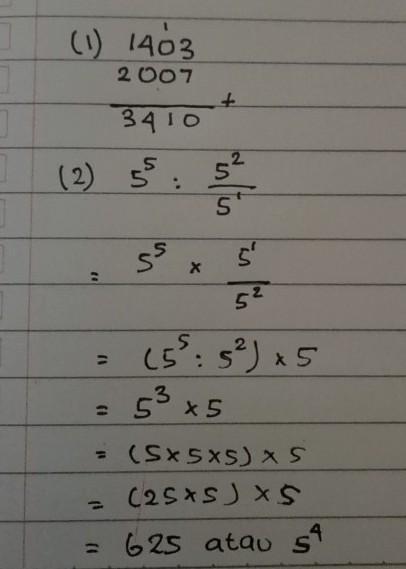 (1) 1403
1
2007
+
3410
(2) 5⁵ : 5²/5¹
= 5⁵ × 5¹/5²
= (5⁵ : 5²) × 5
= 5³ × 5
= (5×5×5) × 5
= (25×5) × 5
= 625 atau 5⁴